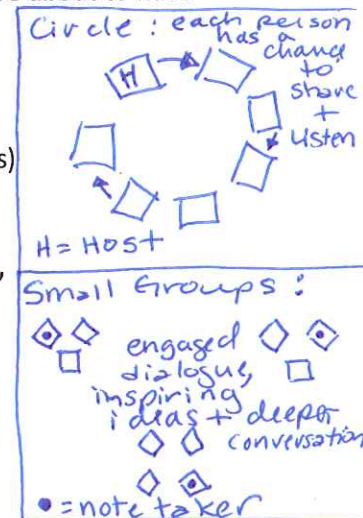 Circle : each person
has a
chance
to
share
+
listen
H
s)
H = Host
,
Small Groups :
engaged
dialogue,
inspiring
ideas + deeper
conversation
• = note taker